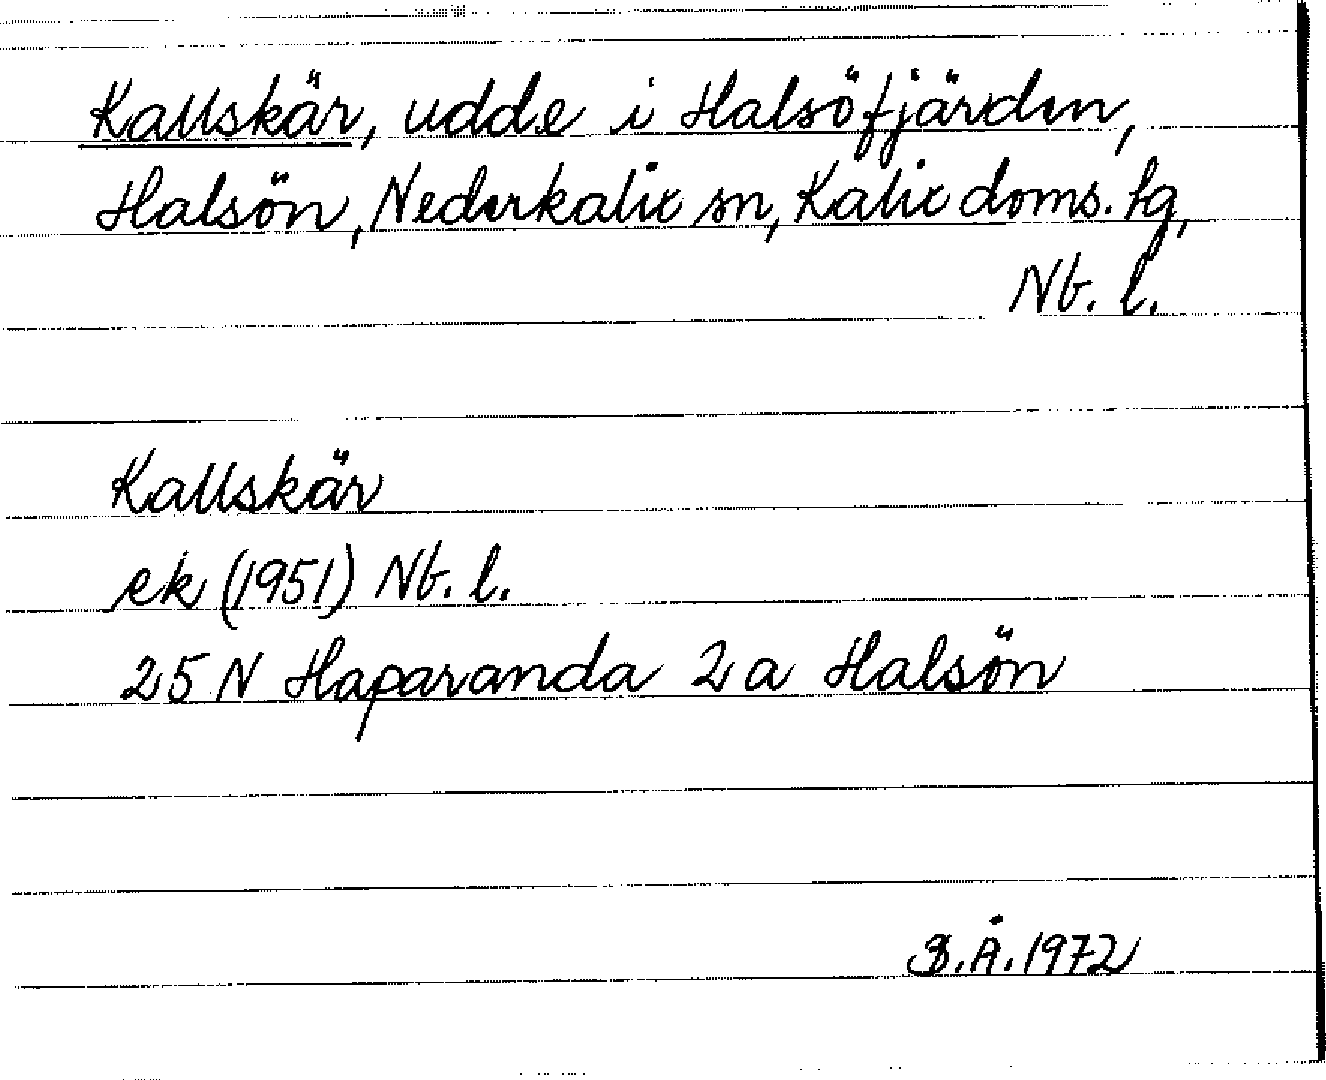 Kallskär, udde i Halsöfjärden,
Halsön, Nederkalix sn, Kalix doms. tg,
Nb. l.
Kallskär
ek (1951) Nb. l.
25 N Haparanda 2a Halsön
B.Å. 1972